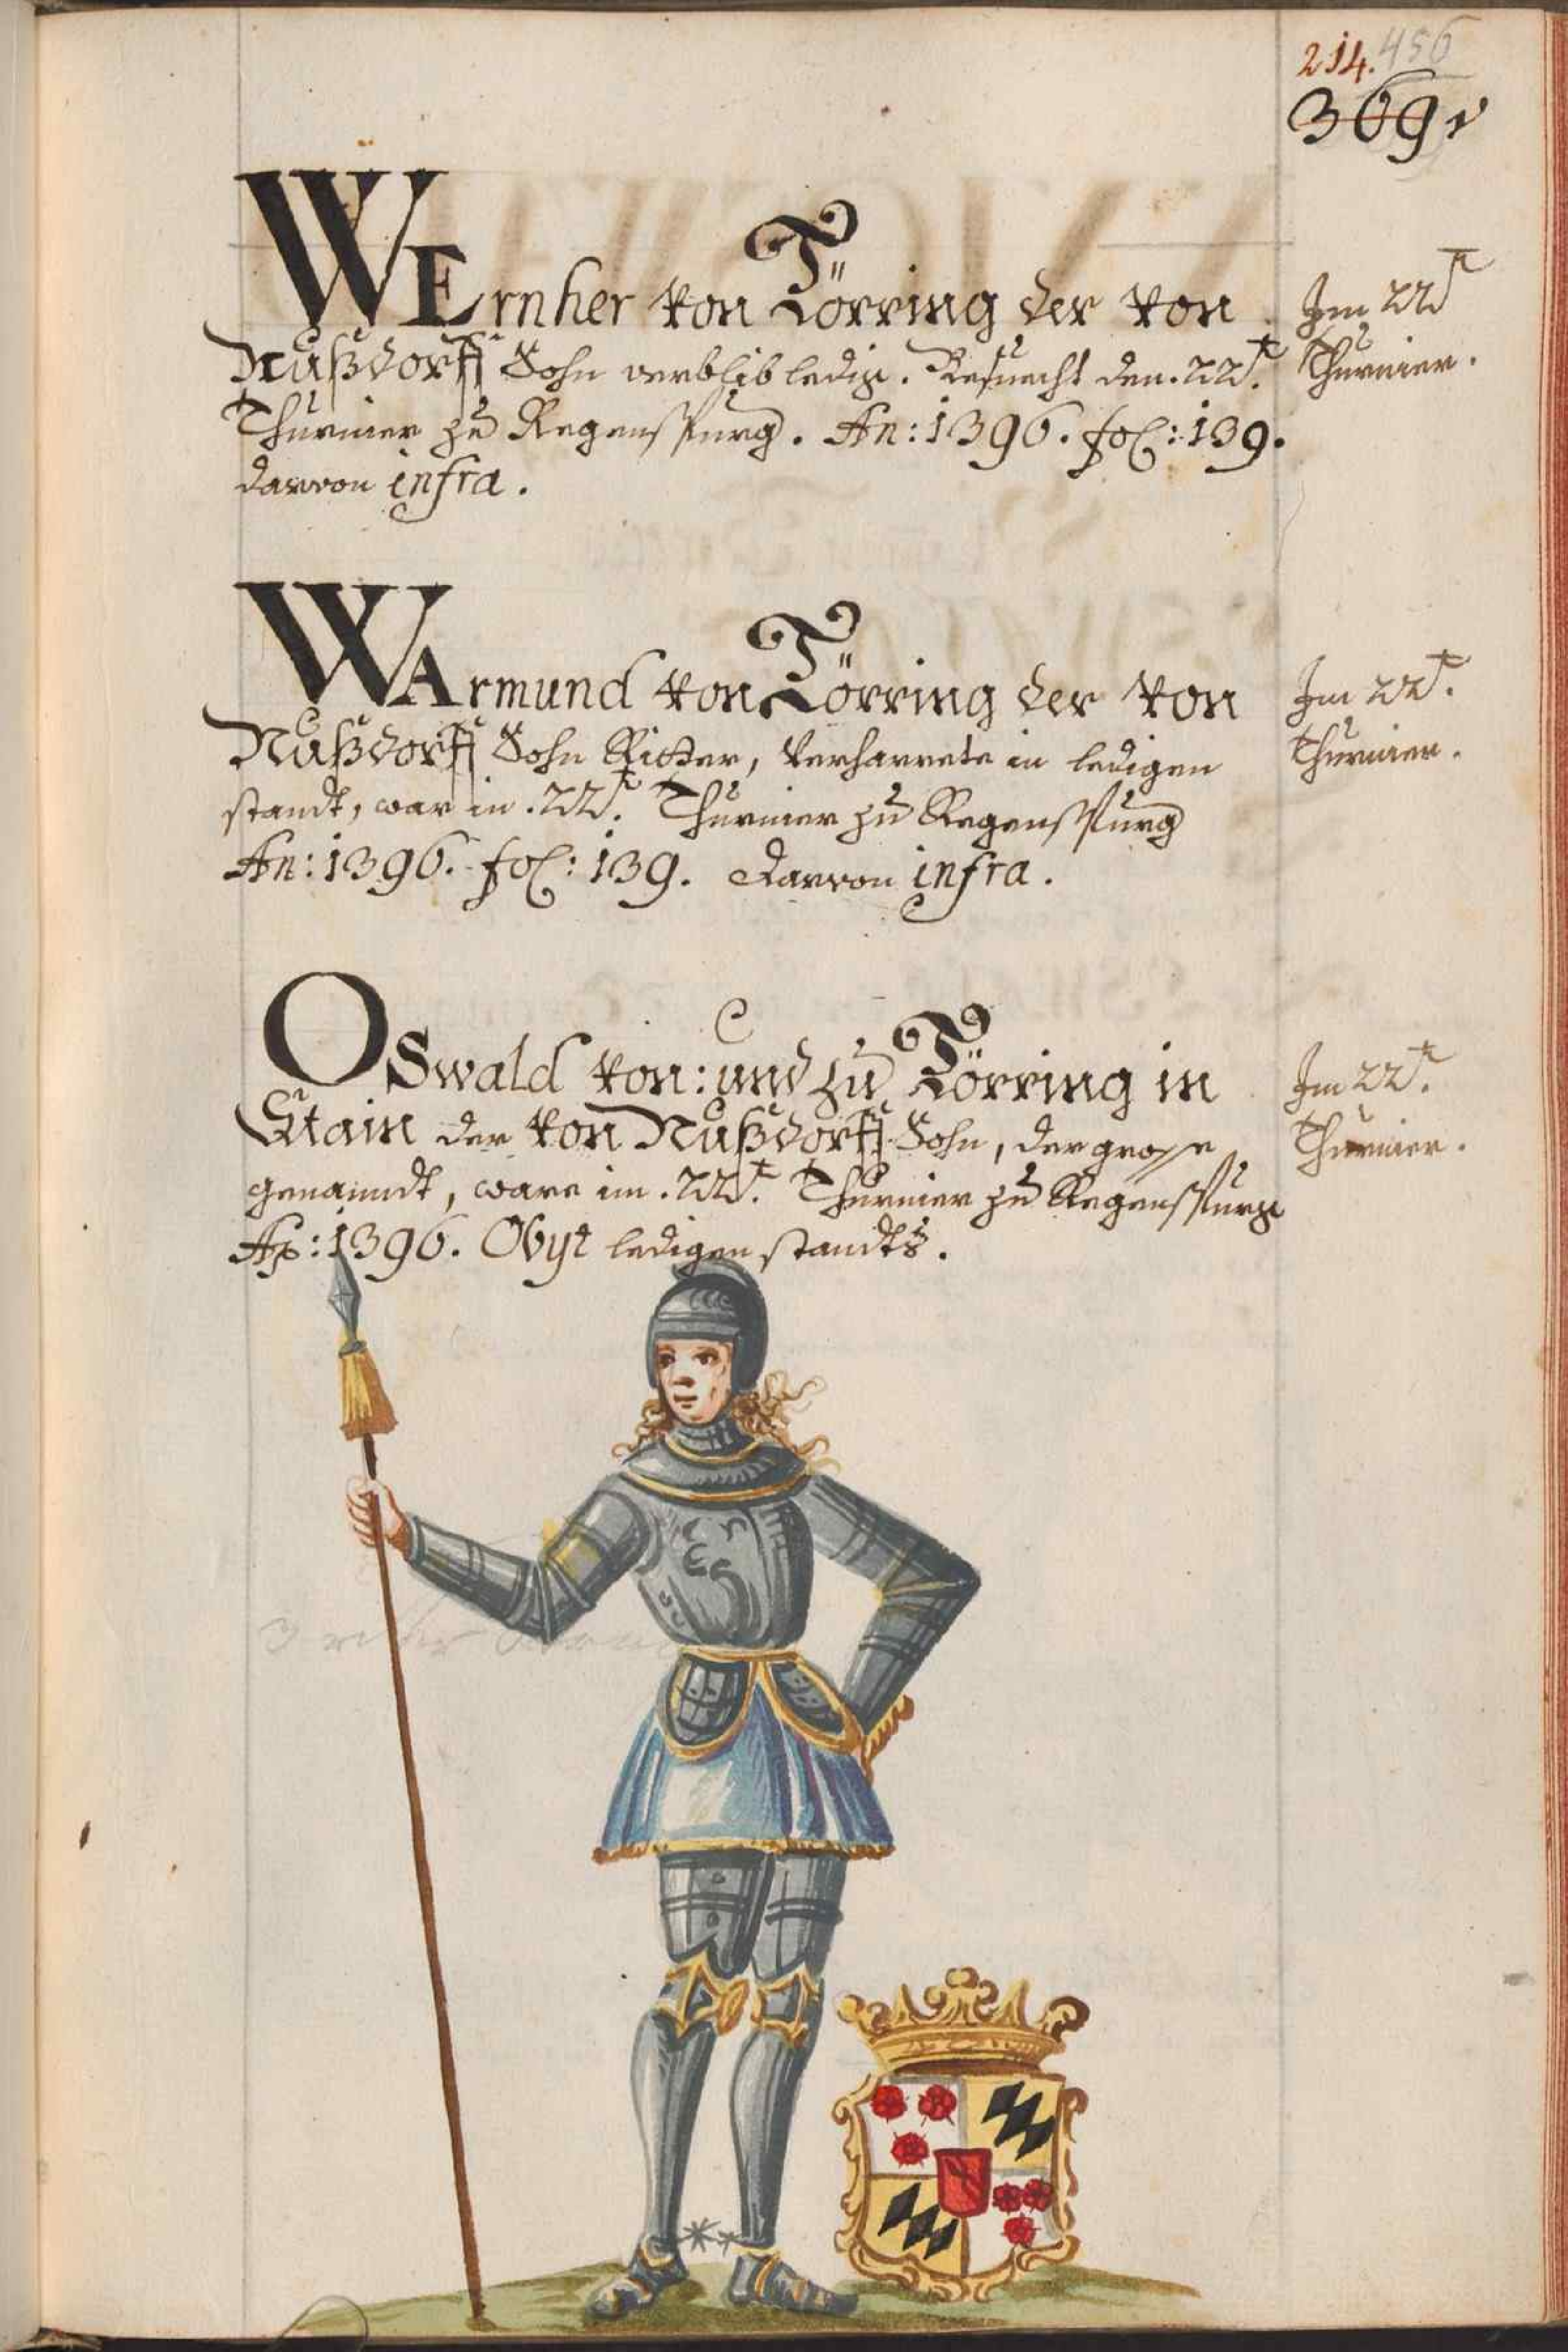 214. 456
369
WErnher von Törring der von
Nußdorff Sohn verblib ledig. Besuecht den. 22t.
Thurnier zu Regenspurg. An: 1396. fol: 139.
darvon infra.
Im 22t
Thurnier.
WArmund von Törring der von
Nußdorff Sohn Ritter, Verharrete in ledigen
standt, war in. 22t. Thurnier zu Regenspurg
An: 1396. fol: 139. darvon infra.
Im 22t.
Thurnier.
OSwald von: und zu Törring in
Stain der von Nußdorff Sohn, der grosse
genanndt, ware im. 22t. Thurnier zu Regenspurg
Ao: 1396. Obyt ledigen standts.
Im 22t.
Thurnier.